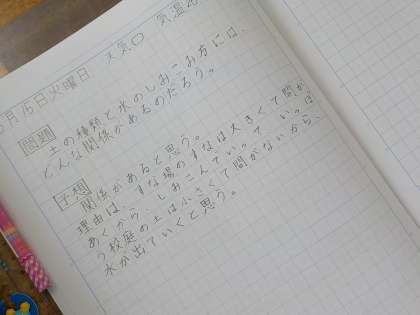 月15日火曜日 天気 気温
問題 土の種類と水のしみこみ方には、
どんな関係があるのだろう。
予想 関係があると思う。
理由は、すな場のすなは大きくて間が
あくから、しみこんでいって、いっぽ
う校庭の土は小さくて間がないから、
水が出ていくと思う。